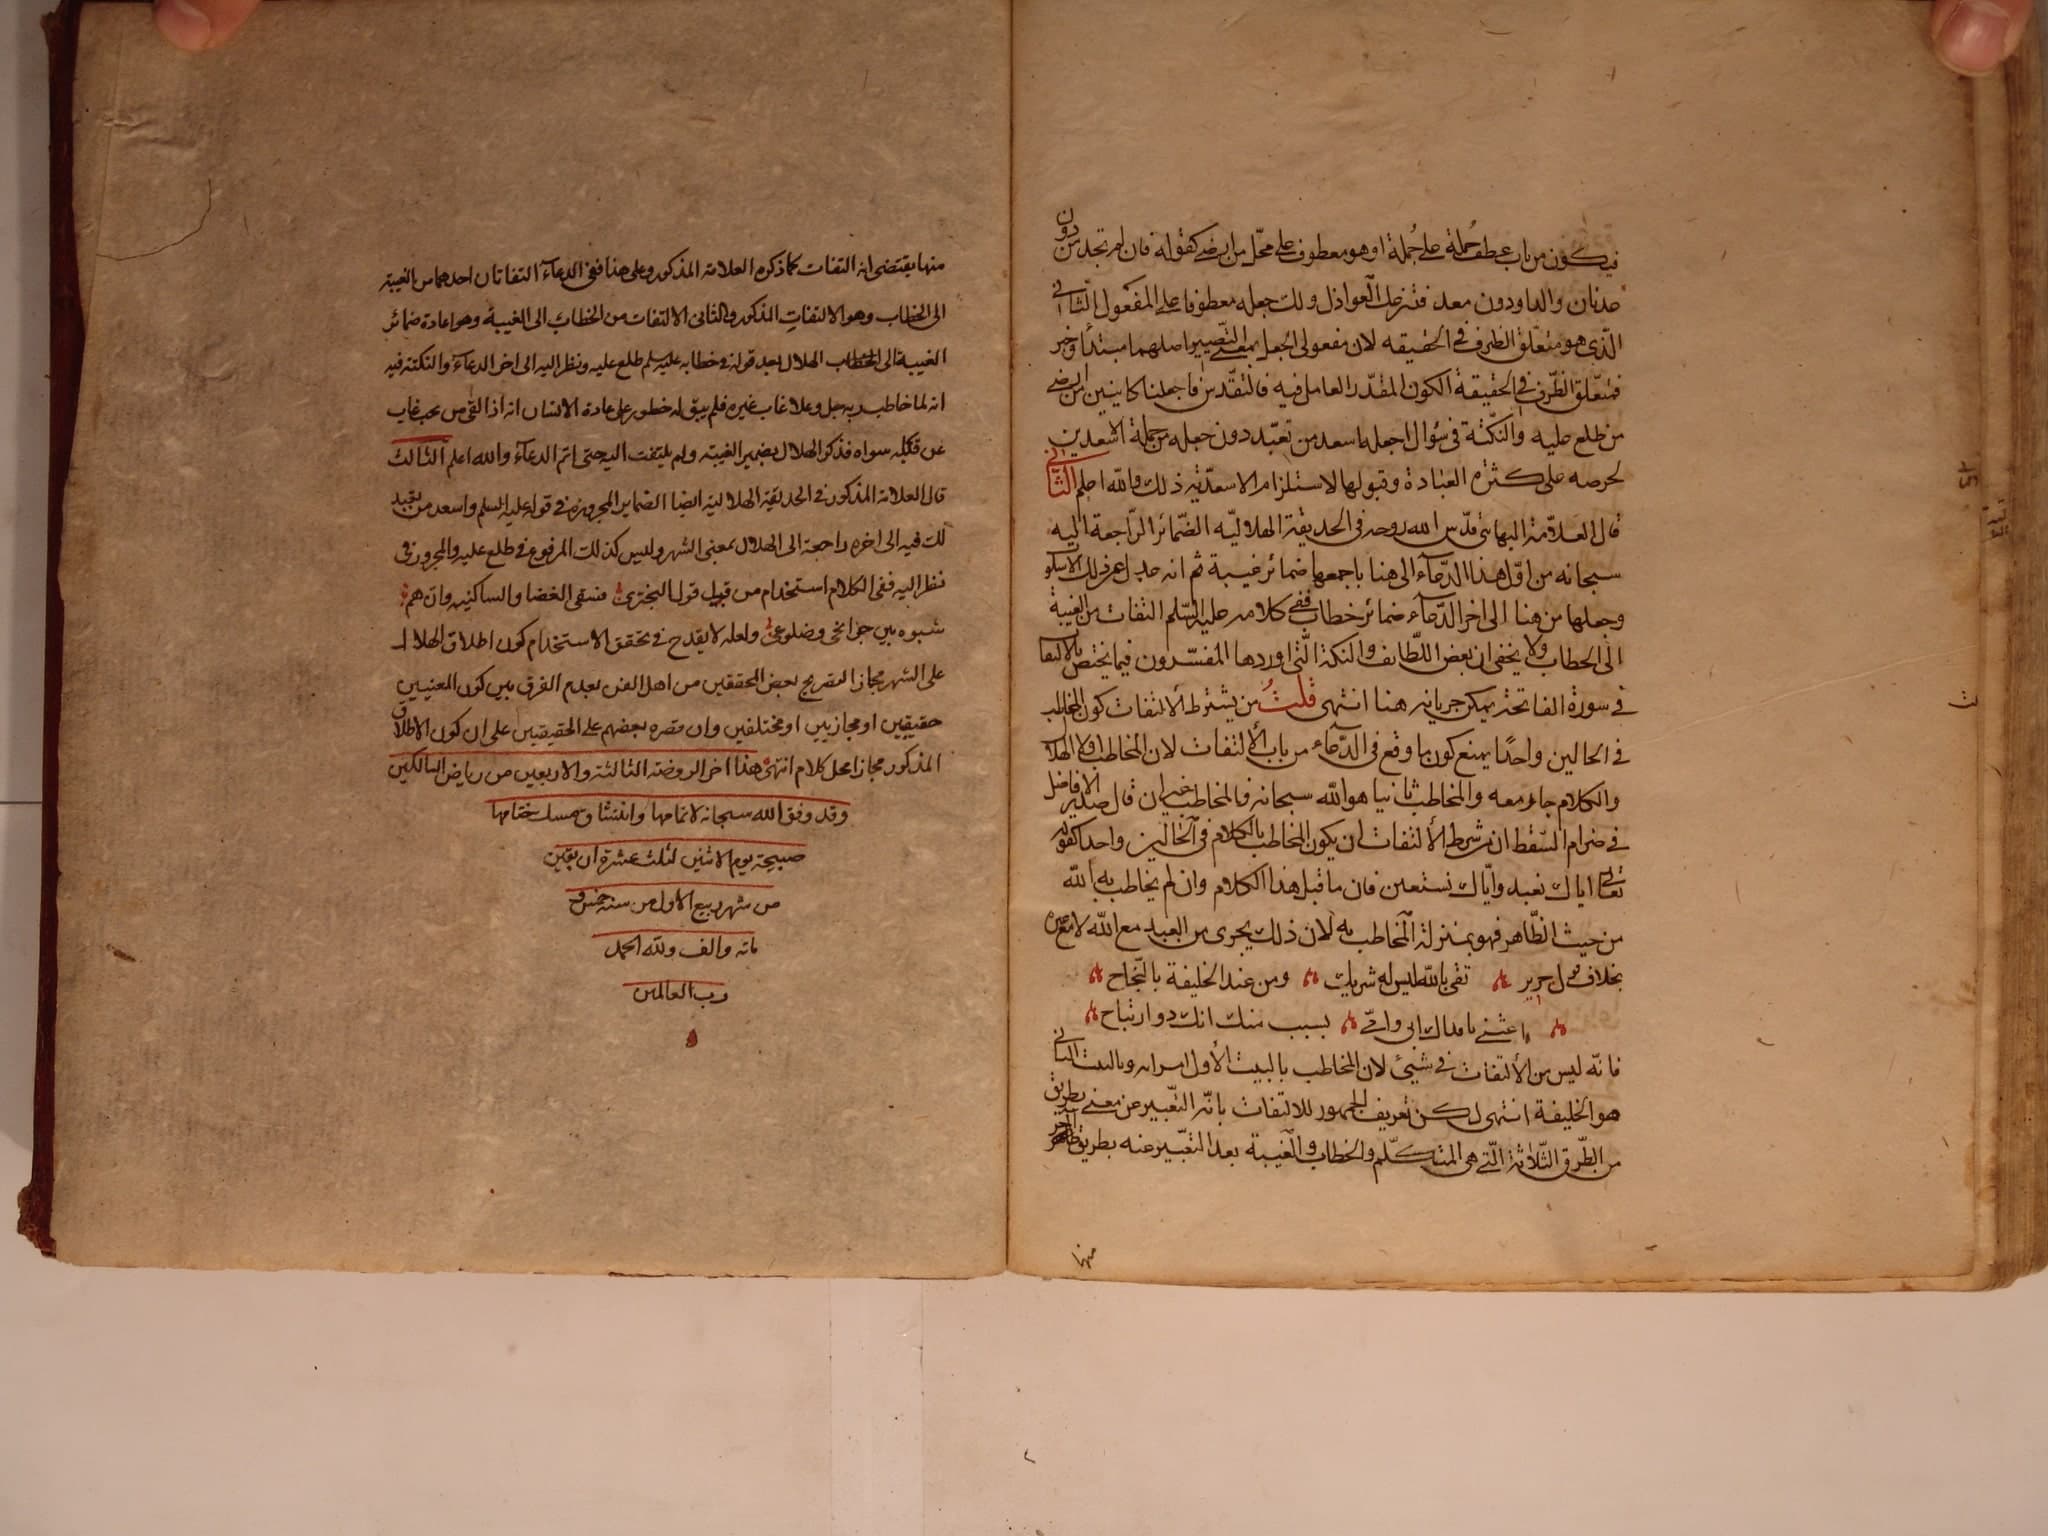 فيكون من باب عطف جملة على جملة او هو معطوف على محل من ارضى كقوله فان لم تجد من دون
عدنان والدا ودون معد فتزعك العواذل ولك جعله معطوفا على المفعول الثاني
الذي هو متعلق الظرف في الحقيقه لان مفعولى الجعل بمعنى التصيير اصلهما مبتدأ وخبر
فمتعلق الظرف في الحقيقة الكون المقدر العامل فيه فالتقدير فاجعلنا كاينين من ارضى
من طلع عليه والنكتة في سؤال اجعله اسعد من تعبد دون جعله من جملة الاسعدين
لحرصه على كثرة العبادة وقبولها لاستلزام الاسعدية ذلك والله اعلم الثاني
قال العلامة البهائي قدس الله روحه في الحديقة الهلالية الضمائر الراجعة اليه
سبحانه من اول هذا الدعاء الى هنا باجمعها ضمائر غيبة ثم انه عدل عن ذلك الاسلو
وجعلها من هنا الى اخر الدعاء ضمائر خطاب ففي كلامه عليه السلم التفات من الغيبة
الى الخطاب ولا يخفى ان بعض اللطايف والنكة التي اوردها المفسرون فيما يختص بالالتفا
في سورة الفاتحة يمكن جريانه هنا انتهى قلت من يشترط الالتفات كون المخاطب
في الحالين واحدا يمنع كون ما وقع في الدعاء من باب الالتفات لان المخاطب اولا الهلال
والكلام جار معه والمخاطب ثانيا هو الله سبحانه فالمخاطب غيران قال صدر الافاضل
في ضرام السقط ان من شرط الالتفات ان يكون المخاطب بالكلام في الحالين واحدا كقوله
تعالى اياك نعبد واياك نستعين فان ما قبل هذا الكلام وان لم يخاطب به الله
من حيث الظاهر فهو بمنزلة المخاطب به لان ذلك يجرى من العبد مع الله لا مع غيره
بخلاف قول جرير ثقى بالله ليس له شريك ومن عند الخليفة بالنجاح
اغثني يا فداك ابي وامي بسيب منك انك ذو ارتياح
فانه ليس من الالتفات في شيئ لان المخاطب بالبيت الأول امراته وبالبيت الثاني
هو الخليفة انتهى لكن تعريف الجمهور للالتفات بانه التعبير عن معنى بطريق
من الطرق الثلاثة التي هي المتكلم والخطاب والغيبة بعد التعبير عنه بطريق اخر
منها
منها يقتضى انه التفات كما ذكره العلامة المذكور وعلى هذا ففي الدعاء التفاتان احدهما من الغيبة
الى الخطاب وهو الالتفات المذكور والثانى الالتفات من الخطاب الى الغيبة وهو اعادة ضمائر
الغيبة الى الهلال بعد قوله في خطابه عليه سلم طلع عليه ونظر اليه الى اخر الدعاء والنكتة فيه
انه لما خاطب ربه جل وعلا غاب غيره فلم يبق له خطور على عادة الانسان انه اذا التقى من يحب غاب
عن قلبه سواه فذكر الهلال بضمير الغيبة ولم يلتفت اليه حتى اتم الدعاء والله اعلم الثالث
قال العلامة المذكور في الحديقة الهلالية ايضا الضماير المجرورة في قوله عليه السلم واسعد من تعبد
لك فيه الى اخره راجعة الى الهلال بمعنى الشهر وليس كذلك المرفوع في طلع عليه والمجرور في
نظر اليه ففي الكلام استخدام من قبيل قول البحترى فسقى الغضا والساكنيه وان هم
شبوه بين جوانحى وضلوعى ولعله لا يقدح في تحقق الاستخدام كون اطلاق الهلال
على الشهر مجازا لتصريح بعض المحققين من اهل الفن بعدم الفرق بين كون المعنيين
حقيقيين او مجازيين او مختلفين وان قصره بعضهم على الحقيقيين على ان كون الاطلاق
المذكور مجازا محل كلام انتهى هذا اخر الروضة الثالثة والاربعين من رياض السالكين
وقد وفق الله سبحانه لاتمامها وانتشاق مسك ختامها
صبيحة يوم الاثنين لثلث عشرة ان بقين
من شهر ربيع الاول من سنة خمس و
مائة والف ولله الحمد
رب العالمين